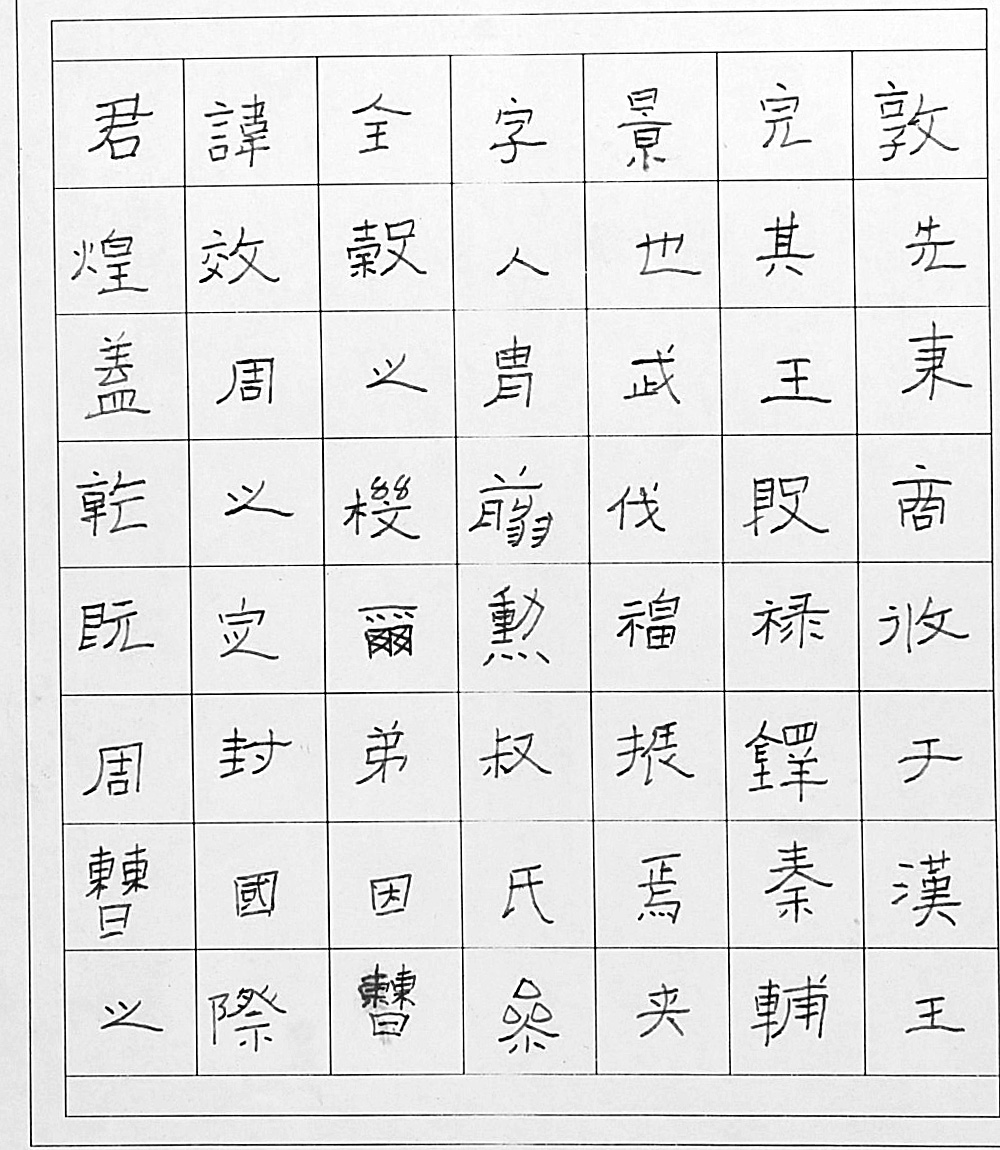 君諱全字景完敦
煌效穀人也其先
蓋周之胄武王秉
乾之機翦伐殷商
既定爾勳福祿攸
周封弟叔振鐸于
曹國因氏焉秦漢
之際曹參夾輔王